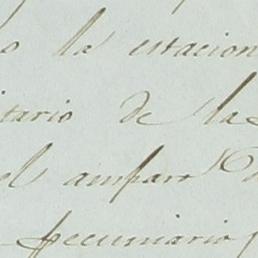 o la estacion
itario de las
el amparo
pecuniario